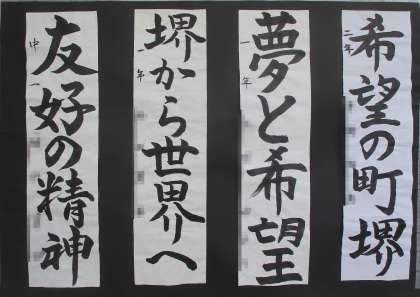 希望の町堺
二年
夢と希望
一年
堺から世界へ
一年
友好の精神
中一